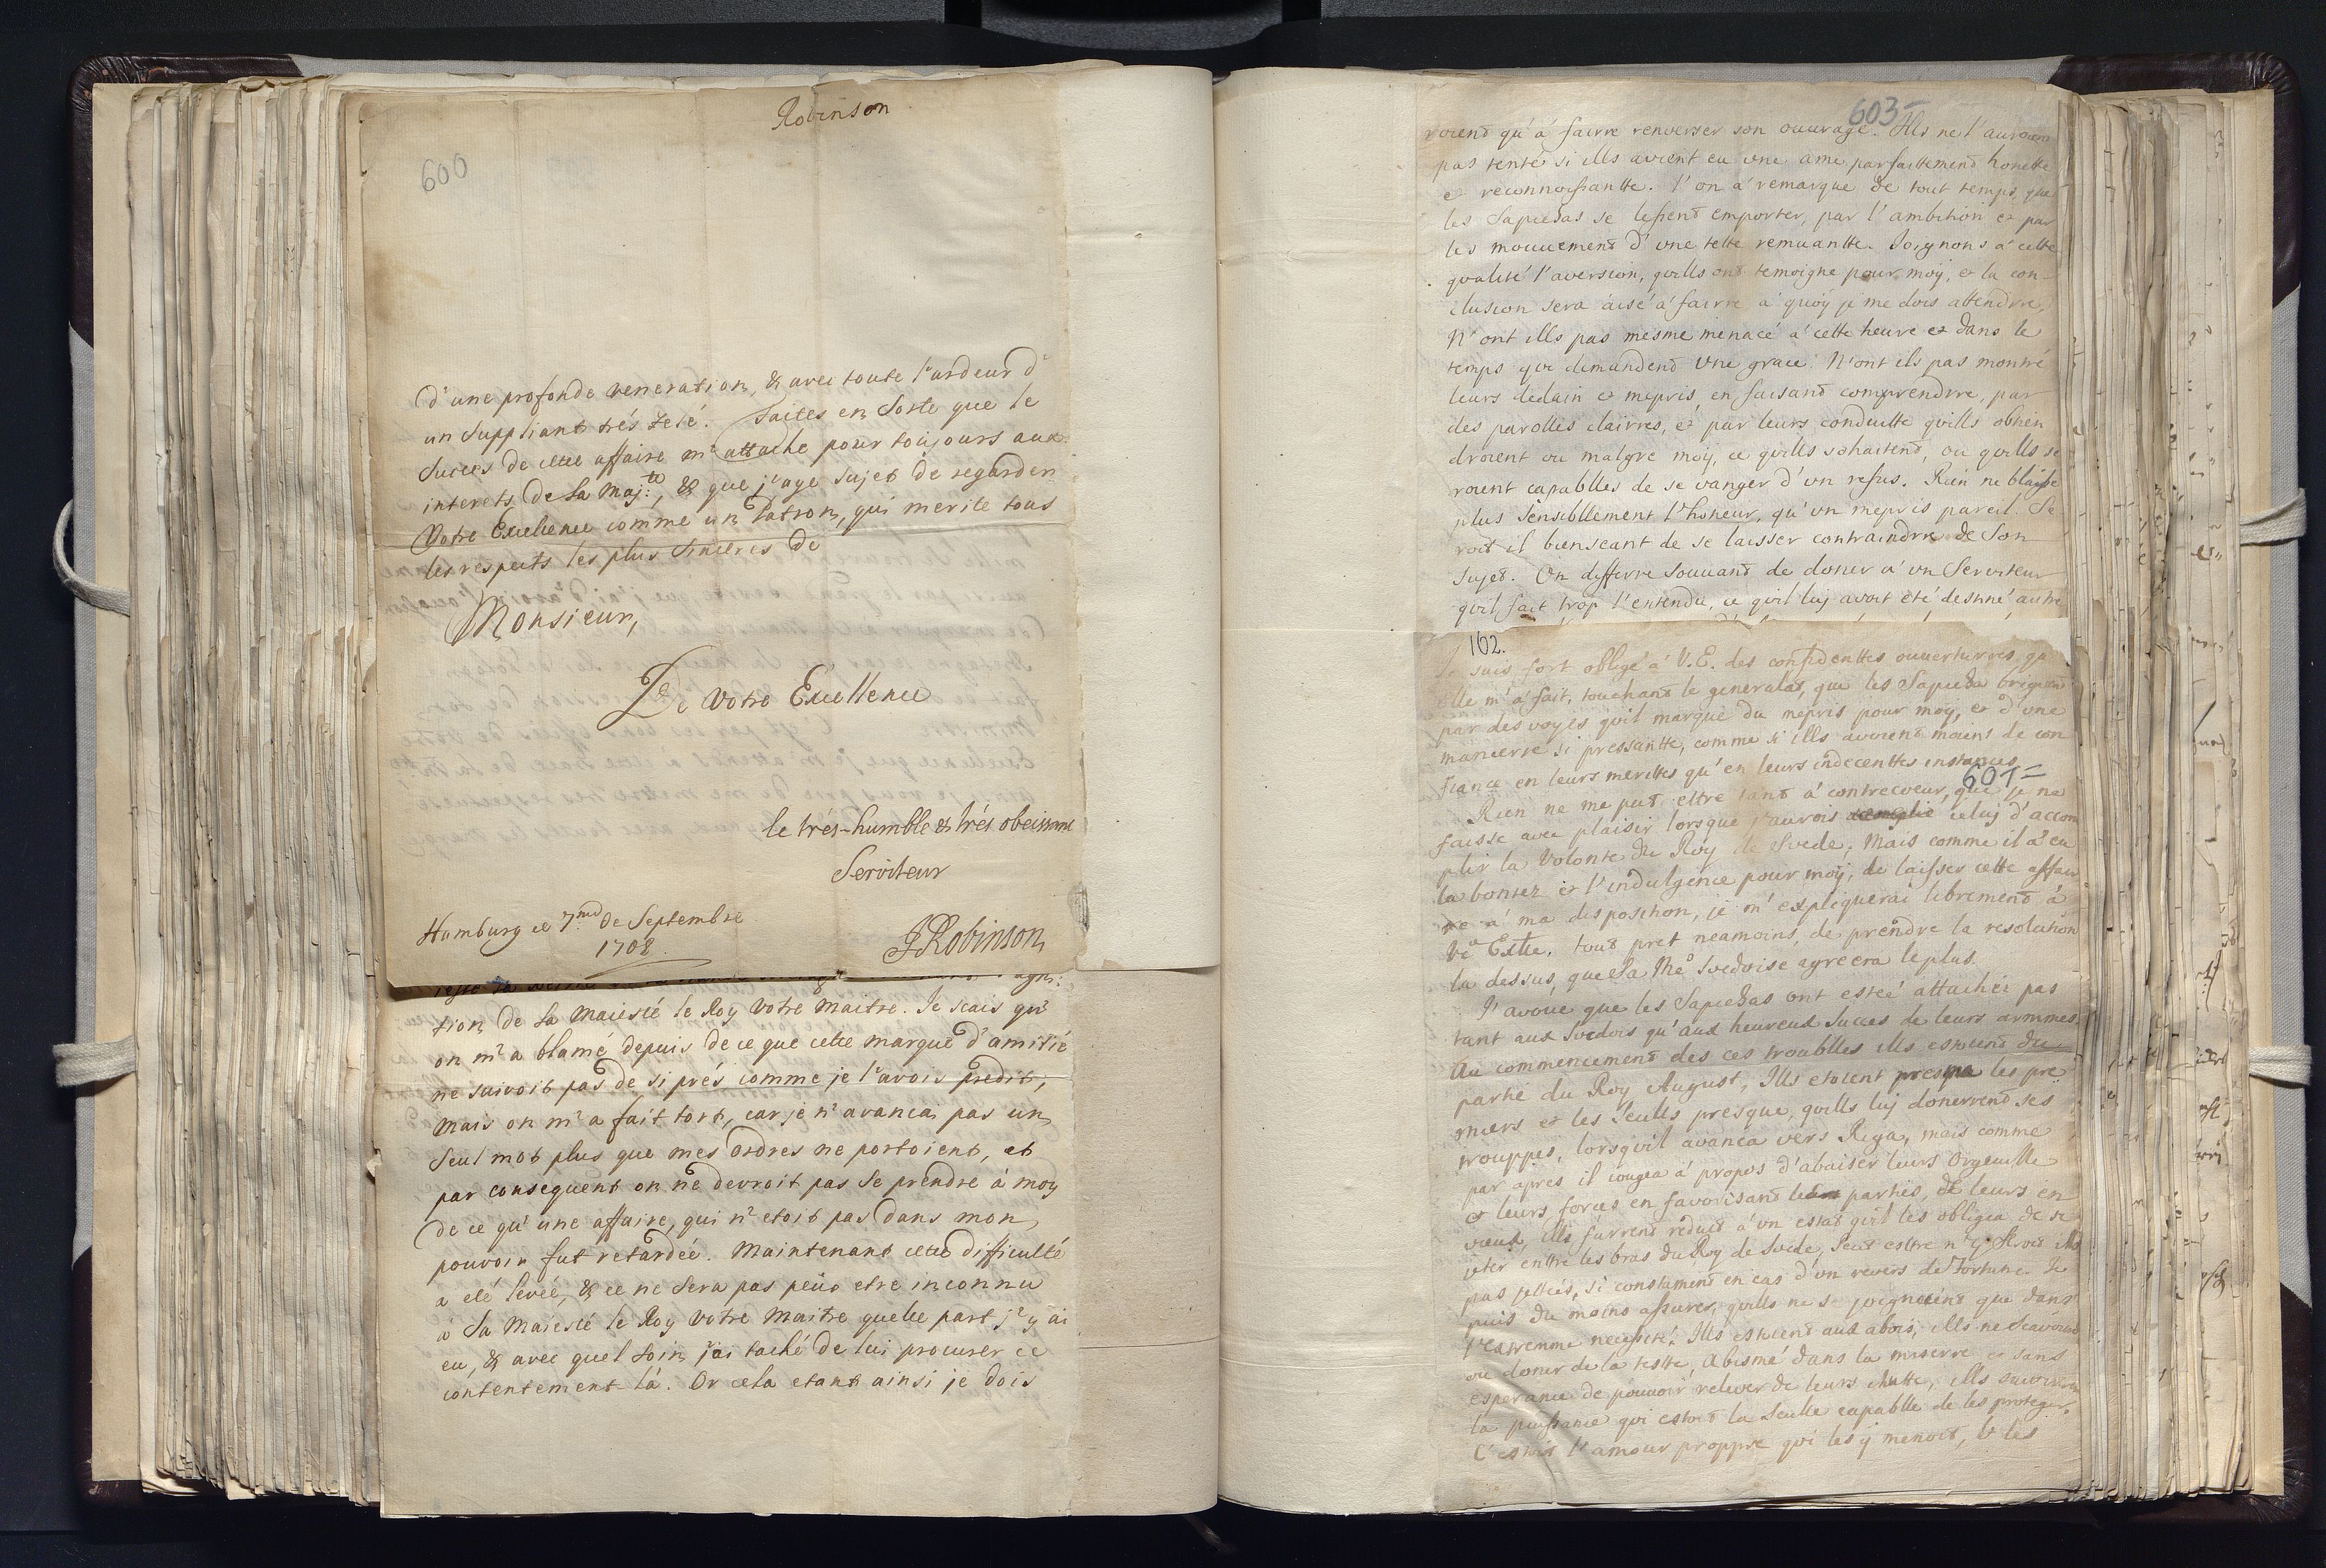 Robinson
600
d'une profonde veneration, & avec toute l'ardeur d'
un suppliant trés zelé. Faites en sorte que le
succes de cette affaire m'attache pour toujours aux
interets de Sa Maj:te, & que j'aye sujet de regarder
Votre Excellence comme un Patron, qui merite tous
les respects les plus sinceres de
Monsieur,
De Votre Excellence
le trés-humble & trés obeissant
Serviteur
Hamburg ce 7me de Septembre
1708.
JRobinson
tion de Sa Maiesté le Roy Votre Maitre. Je scais qu'
on m'a blamé depuis de ce que cette marque d'amitié
ne suivoit pas de si prés comme je l'avois predit;
mais on m'a fait tort, car je n'avancai pas un
seul mot plus que mes ordres ne portoient, et
par consequent on ne devroit pas se prendre à moy
de ce qu'une affaire, qui n'etoit pas dans mon
pouvoir fut retardée. Maintenant cette difficulté
a eté levée, & ce ne sera pas peût etre inconnu
à Sa Maiesté le Roy Votre Maitre quelle part j'y ai
eu, & avec quel soin j'ai taché de lui procurer ce
contentement-là. Or cela etant ainsi je dois
603
roient qu'á fairre renverser son ouurage. Ills ne l'auroient
pas tenté si ills avoient eu vne ame parfaittement honette
et reconnoissantte. l'on a remarque de tout temps, que
les Sapiehas se lessent emporter, par l'ambition et par
les mouuement d'vne tette remuantte. Joignons á cette
qvalité l'aversion, qvills ont temoigne pour moÿ, et la con-
clusion sera aisé á fairre á quoÿ je me dois attendre,
N'ont ills pas mesme menacé á cette heure et dans le
temps qvi demandent vne grace. N'ont ils pas montré
leurs dedain et mepris, en faisant comprendre, par
des parolles clairres, et par leurs conduitte qvills obtien
droient ou malgre moÿ, ce qvills sohaitent, ou qvills se
roient capablles de se vanger d'vn refus. Rien ne blaisse
plus sensibllement l'honeur, qu'vn mepris pareil. Se
roit il bienseant de se laisser contraindre de son
sujet. On differre souuant de doner á vn Serviteur
qvil fait trop l'entendu, ce qvil luj avoit été destiné autre
162.
Je suis fort obligé á V.E. des confidenttes ouverturres qu'
Elle m'a fait, touchant le generalat, que les Sapieha briguent
par des voyes qvil marque du mepris pour moy, et d'vne
manierre si pressantte, comme si ills avoient moins de con
fiance en leurs merittes qu'en leurs indecenttes instances
601
Rien ne me put ettre tant á contrecoeur, que je ne
faisse avec plaisir lorsque j'auvois celuj d'accom
plir la Volonte du Roÿ de Svede; Mais comme il a eu
la bontez et l'indulgence pour moÿ, de laisser cette affair
re á ma disposition, je m'expliquerai librement á
Ve Extle. tout pret neamoins, de prendre la resolution
la dessus, que Sa Mté Svedoise agreera le plus.
J'avoue que les Sapiehas ont esteé attachéz pas
tant aux Svedois qu'aux heureux Succes de leurs armmes.
Au commencement des ces troublles ills estoient du
partie du Roy August, Ills etoient les pre
miers et les Seulls presque, qvills luj donerrent ses
trouppes, lorsqvil avanca vers Riga, mais comme
par apres il iougea á propos d'abaiser leurs Orgeuille
et leurs forces en favorisant parties, de leurs en
vieux, ills furrent reduit á vn estat qvil les obligea de se
jeter enttre les bras du Roy de Svede, Peut esttre n'y seroit ills
pas jettéés, si constament en cas d'vn revers de Fortune. Je
puis du moins assurer, qvills ne se joignoient que dans
l'extremme necessité. Ills estoient aux abois, ills ne scavoient
ou doner de la teste, Abismé dans la miserre et sans
esperance de pouvoir relever de leurs chutte, ills suivirrent
la puissance qvi estoit la Seulle capablle de les proteger.
C'estoit l'amour proppre qvi les ÿ menoit, & les